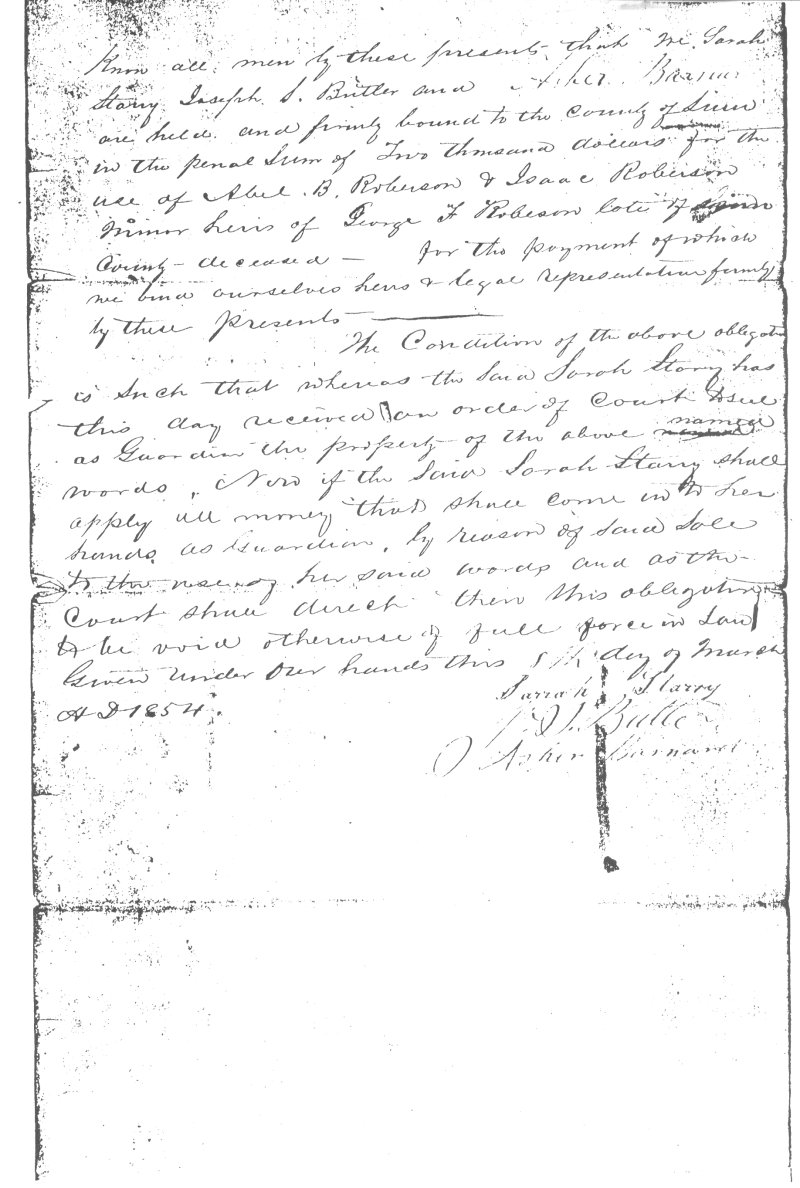 Know all men by these presents that we Sarah
Starry Joseph S. Butler and Asher
are held and firmly bound to the County of Linn
in the penal Sum of Two thousand dollars for the
use of Abel B. Roberson & Isaac Roberson
Minor heirs of George F Roberson late of Linn
County deceased — for the payment of which
we bind ourselves heirs & legal representatives firmly
by these presents —
The Condition of the above obligation
is Such that whereas the Said Sarah Starry has
this day received an order of Court to sell
as Guardian the property of the above named
words, Now if the Said Sarah Starry shall
apply all money that shall come in to her
hands as Guardian, by reason of said Sale
to the use of her said words and as the
Court shall direct then this obligation
to be void otherwise of full force in Law
Given under Our hands this day of March
A D 1854.
Sarrah Starry
J. S. Butler
Asher Barnard